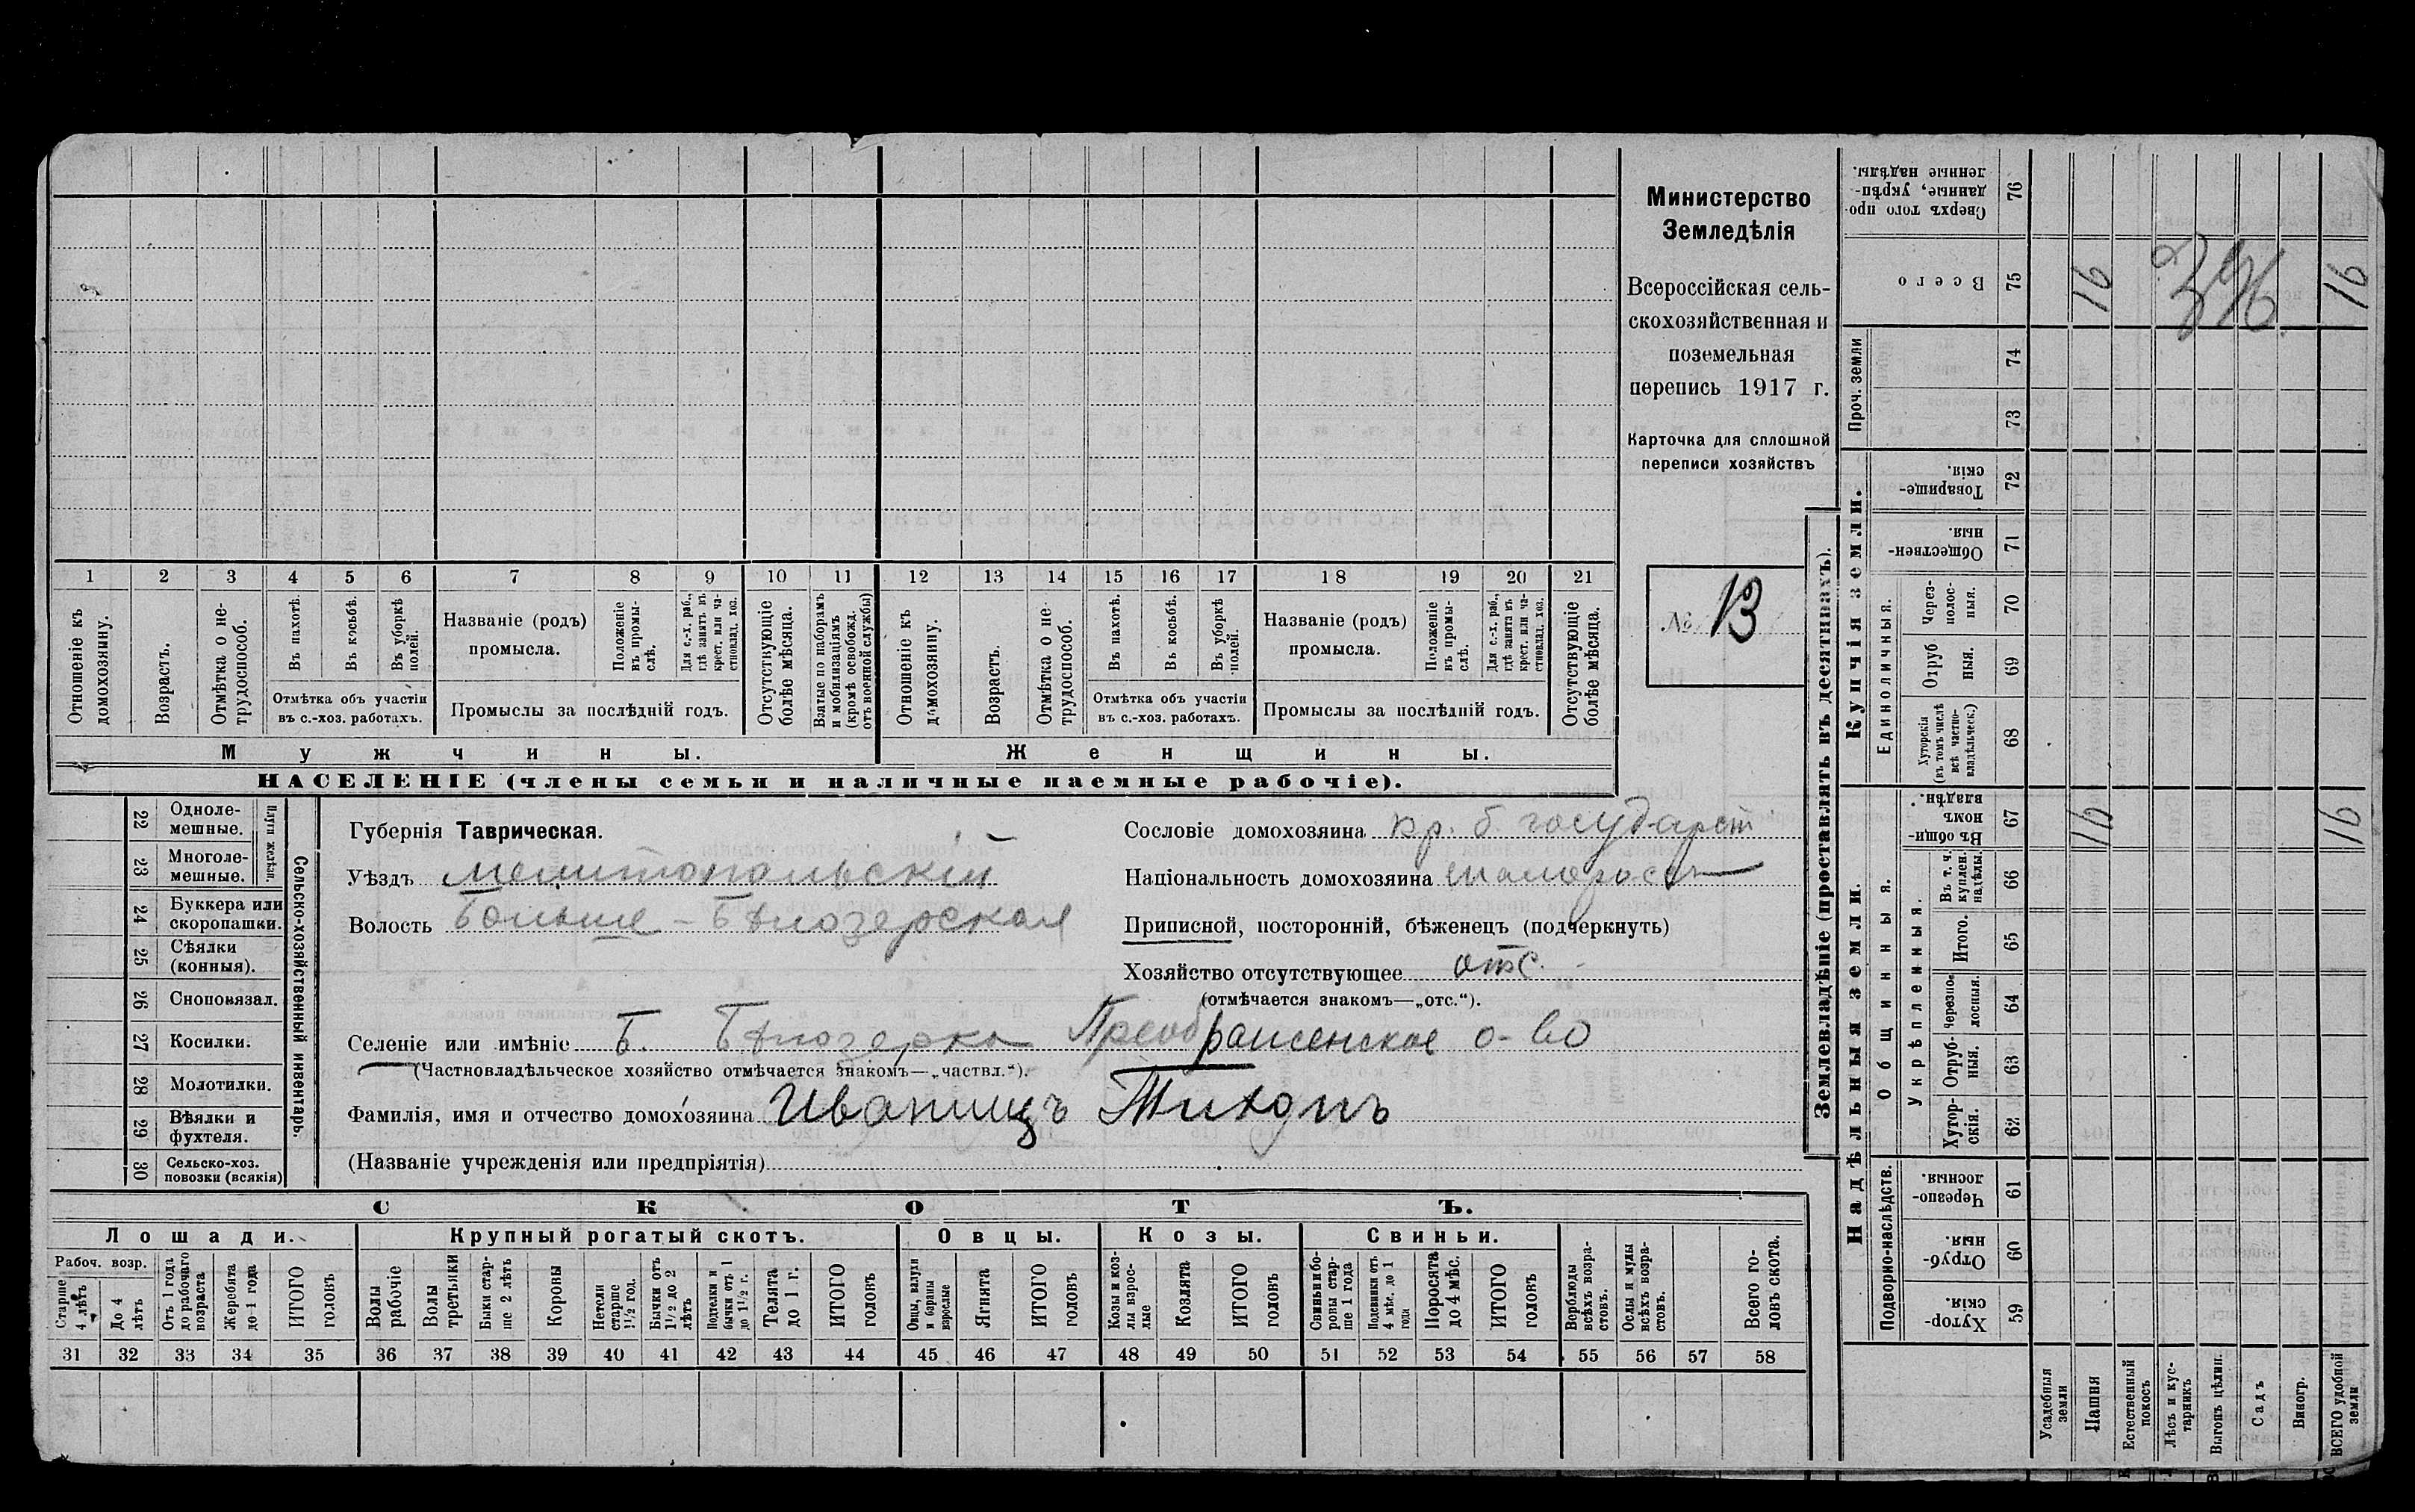 1 2 3 4 5 6 7 8 9 10 11 12 13 14 15 16 17 18 19 20 21
Отношеніе къ домохозяину.
Возрастъ.
Отмѣтка о не-трудоспособ.
Въ пахотѣ.
Въ косьбѣ.
Въ уборкѣ полей.
Отмѣтка объ участіи
въ с.-хоз. работахъ.
Названіе (родъ)
промысла.
Положеніе въ промы-слѣ.
Для с.-х. раб., гдѣ занятъ въ крест. или ча-стновлад. хоз.
Промыслы за послѣдній годъ.
Отсутствующіе болѣе мѣсяца.
Взятые по наборамъ и мобилизаціямъ (кромѣ освобожд. отъ военной службы)
Отношеніе къ домохозяину.
Возрастъ.
Отмѣтка о не-трудоспособ.
Въ пахотѣ.
Въ косьбѣ.
Въ уборкѣ полей.
Отмѣтка объ участіи
въ с.-хоз. работахъ.
Названіе (родъ)
промысла.
Положеніе въ промы-слѣ.
Для с.-х. раб., гдѣ занята въ крест. или ча-стновлад. хоз.
Промыслы за послѣдній годъ.
Отсутствующіе болѣе мѣсяца.
Мужчины.
Женщины.
НАСЕЛЕНІЕ (члены семьи и наличные наемные рабочіе).
Министерство
Земледѣлія
Всероссійская сель-
скохозяйственная и
поземельная
перепись 1917 г.
Карточка для сплошной
переписи хозяйствъ
№ 13
22 Одноле-мешные.
23 Многоле-мешные.
Плуги желѣзн.
24 Буккера или скоропашки.
25 Сѣялки (конныя).
26 Сноповязал.
27 Косилки.
28 Молотилки.
29 Вѣялки и фухтеля.
30 Сельско-хоз. повозки (всякія)
Сельско-хозяйственный инвентарь.
Губернія Таврическая.
Уѣздъ Мелитопольскій
Волость Больше-Бѣлозерская
Сословіе домохозяина кр. б. государст
Національность домохозяина малоросъ
Приписной, посторонній, бѣженецъ (подчеркнуть)
Хозяйство отсутствующее отс.
(отмѣчается знакомъ—„отс.“).
Селеніе или имѣніе Б. Бѣлозерка Преображенское о-во
(Частновладѣльческое хозяйство отмѣчается знакомъ—„частвл.“).
Фамилія, имя и отчество домохозяина Иваницъ Тихонъ
(Названіе учрежденія или предпріятія)
СКОТЪ.
Лошади.
Крупный рогатый скотъ.
Овцы.
Козы.
Свиньи.
Рабоч. возр.
Старше 4 лѣтъ
До 4 лѣтъ
Отъ 1 года до рабочаго возраста
Жеребята до 1 года
ИТОГО головъ
Волы рабочіе
Волы третьяки
Быки стар-ше 2 лѣтъ
Коровы
Нетели старше 1½ год.
Бычки отъ 1½ до 2 лѣтъ
Подтелки и бычки отъ 1 до 1½ г.
Телята до 1 г.
ИТОГО головъ
Овцы, валухи и бараны взрослые
Ягнята
ИТОГО головъ
Козы и коз-лы взрос-лые
Козлята
ИТОГО головъ
Свиньи и бо-ровы стар-ше 1 года
Подсвинки отъ 4 мѣс. до 1 года
Поросята до 4 мѣс.
ИТОГО головъ
Верблюды всѣхъ возра-стовъ.
Ослы и мулы всѣхъ возра-стовъ.
Всего го-ловъ скота.
31 32 33 34 35 36 37 38 39 40 41 42 43 44 45 46 47 48 49 50 51 52 53 54 55 56 57 58
Землевладѣніе (проставлять въ десятинахъ).
Сверхъ того про-данные, укрѣп-ленные надѣлы. 76
Всего 75 16 16
Проч. земли
74
73
Купчія земли.
Товарище-скія. 72
Обществен-ныя. 71
Единоличныя.
Через-полос-ныя. 70
Отруб ныя. 69
Хуторскія (въ томъ числѣ всѣ частно-владѣльческ.) 68
Надѣльныя земли.
Общинныя.
Въ общи-номъ владѣн. 67 16 16
Укрѣпленныя.
Въ т. ч. куплен. надѣлы. 66
Итого. 65
Черезпо-лосныя. 64
Отруб-ныя. 63
Хутор-скія. 62
Подворно-наслѣдств.
Черезпо-лосныя. 61
Отруб-ныя. 60
Хутор-скія. 59
Усадебныя земли
Пашня
Естественный покосъ
Лѣсъ и кус-тарникъ
Выгонъ цѣлин.
Садъ
Виногр.
ВСЕГО удобной земли